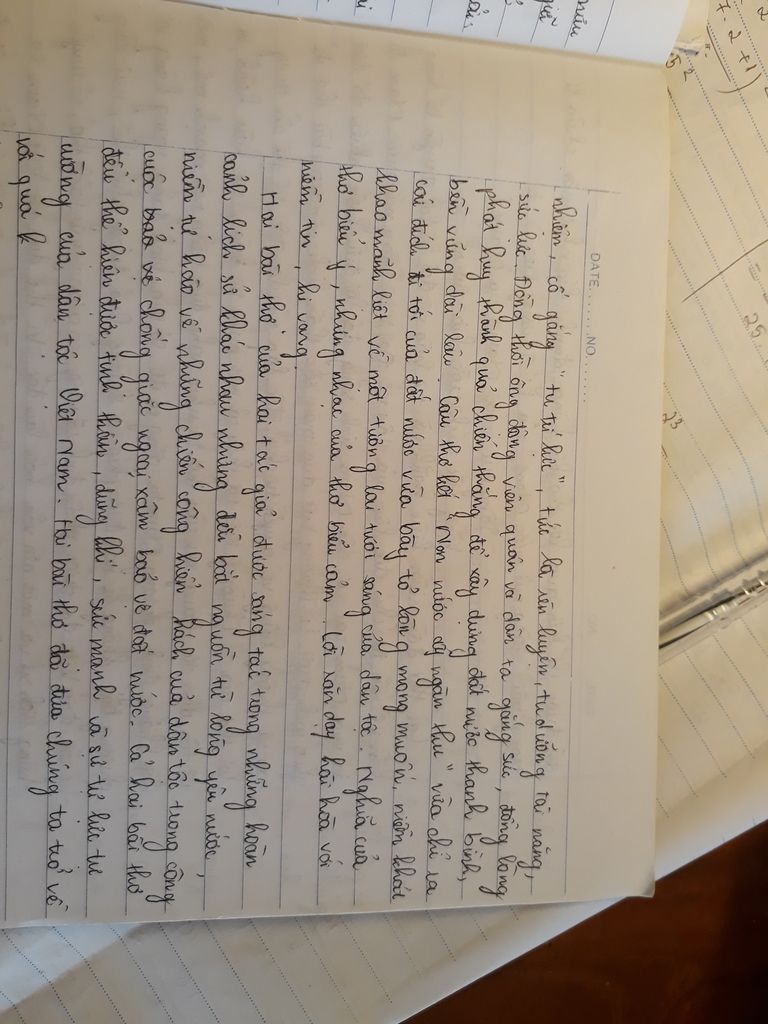 DATE....... NO.......
nhiệm, cố gắng "tu trí lực", tức là rèn luyện, tu dưỡng tài năng,
sức lực. Đồng thời ông động viên quân và dân ta gắng sức, đồng lòng
phát huy thành quả chiến thắng để xây dựng đất nước thanh bình,
bền vững dài lâu. Câu thơ kết "Non nước ấy ngàn thu" vừa chỉ ra
cái đích đi tới của đất nước vừa bày tỏ lòng mong muốn, niềm khát
khao mãnh liệt về một tương lai tươi sáng của dân tộc. Nghĩa của
thơ biểu ý, nhưng nhạc của thơ biểu cảm. Lời răn dạy hài hòa với
niềm tin, hi vọng.
Hai bài thơ của hai tác giả được sáng tác trong những hoàn
cảnh lịch sử khác nhau nhưng đều bắt nguồn từ lòng yêu nước,
niềm tự hào về những chiến công hiển hách của dân tộc trong công
cuộc bảo vệ chống giặc ngoại xâm bảo vệ đất nước. Cả hai bài thơ
đều thể hiện được tinh thần, dũng khí, sức mạnh và sự tự lực tự
cường của dân tộc Việt Nam. Hai bài thơ đã đưa chúng ta trở về
với quá k
7.2+1)
25
23